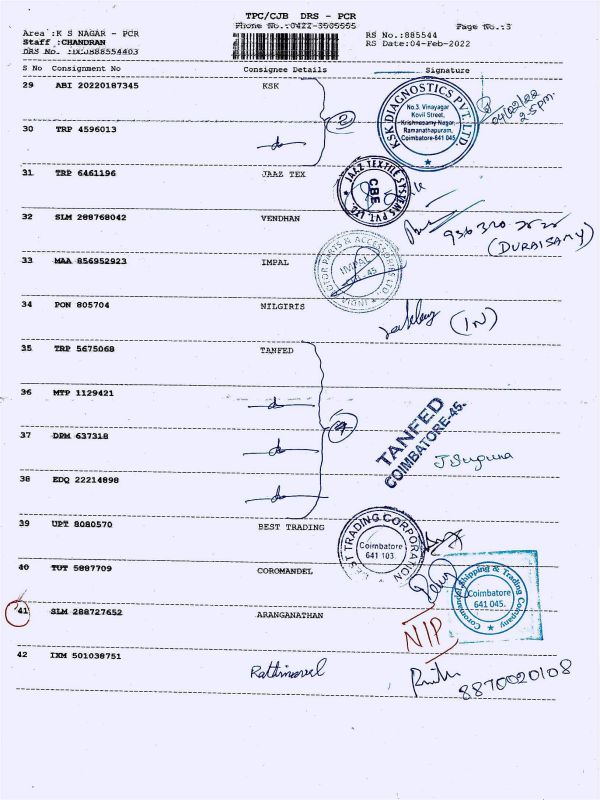 TPC/CJB DRS - PCR
Phone No.:0422-3505505 Page No.:3
Area :K S NAGAR - PCR RS No.:885544
Staff :CHANDRAN RS Date:04-Feb-2022
DRS No. :DCJB88554403
S No Consignment No Consignee Details Signature
29 ABI 20220187345 KSK
KSK DIAGNOSTICS PVT. LTD.
No.3, Vinayagar
Kovil Street,
Krishnasamy Nagar,
Ramanathapuram,
Coimbatore-641 045
04/02/22
2.5pm.
30 TRP 4596013
2
31 TRP 6461196 JAAZ TEX
JAAZ TEXTILE SYSTEMS PVT. LTD.
CBE
32 SLM 288768042 VENDHAN
(DURAISAMY)
33 MAA 856952923 IMPAL
MOTOR PARTS & ACCESSORIES LTD
IMPAL
INDIA
34 PON 805704 NILGIRIS
(IN)
35 TRP 5675068 TANFED
36 MTP 1129421
TANFED
COIMBATORE-45.
37 DRM 637318
4
J Suguna
38 EDQ 22214898
39 UPT 8080570 BEST TRADING
BEST TRADING CORPORATION
Coimbatore
641 103
40 TUT 5887709 COROMANDEL
Coromandel Shipping & Trading Company
Coimbatore
641 045.
41 SLM 288727652 ARANGANATHAN
NIP
42 IXM 501038751 Rattinavel
8870020108